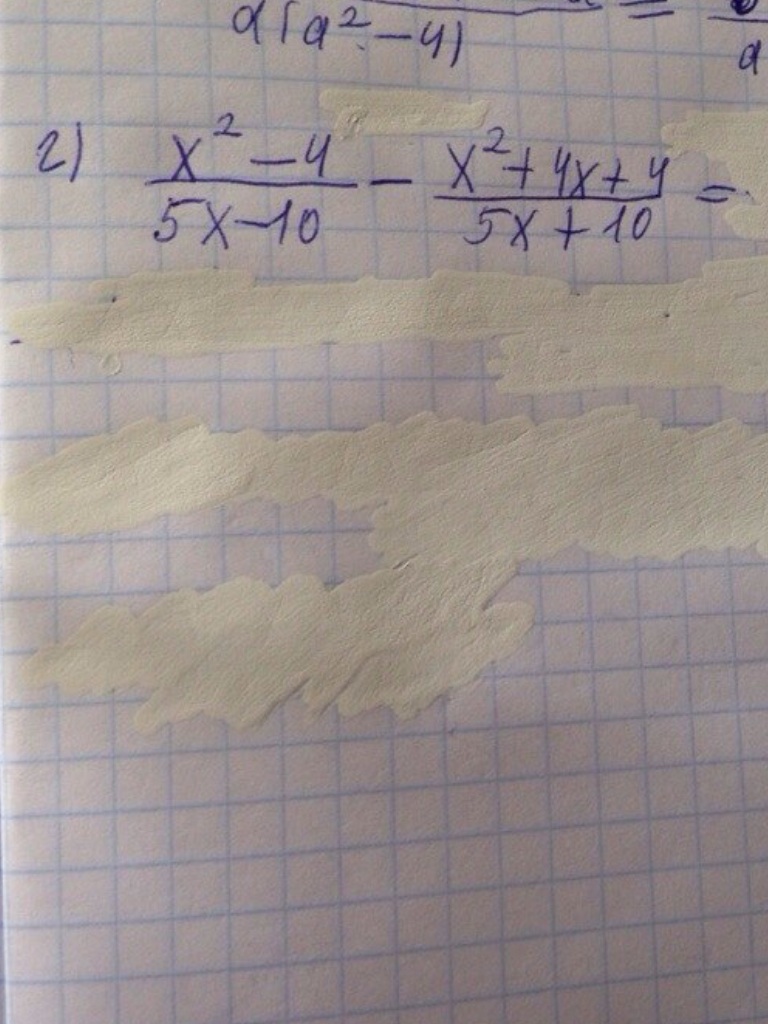 a(a²-4) =
г) (x²-4)/(5x-10) - (x²+4x+4)/(5x+10) =